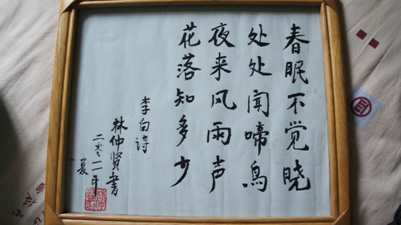 春眠不觉晓
处处闻啼鸟
夜来风雨声
花落知多少
李白诗
林仲贤书
二〇一一年
夏